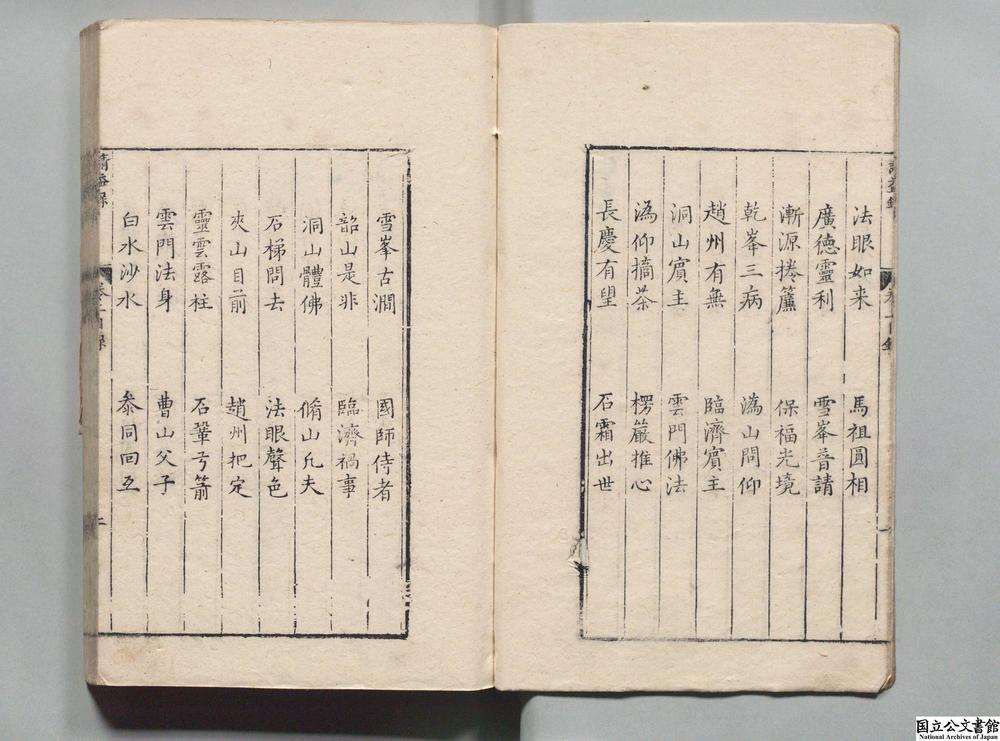 法眼如来 馬祖圓相
廣德靈利 雪峯普請
漸源捲簾 保福光境
乾峯三病 溈山問仰
趙州有無 臨濟賓主
洞山賓主 雲門佛法
溈仰摘茶 楞嚴推心
長慶有望 石霜出世
雪峯古澗 國師侍者
韶山是非 臨濟禍事
洞山體佛 脩山凢夫
石梯問去 法眼聲色
夾山目前 趙州把定
靈雲露柱 石鞏弓箭
雲門法身 曹山父子
白水沙水 叅同回互
請益録
国立公文書館
National Archives of Japan